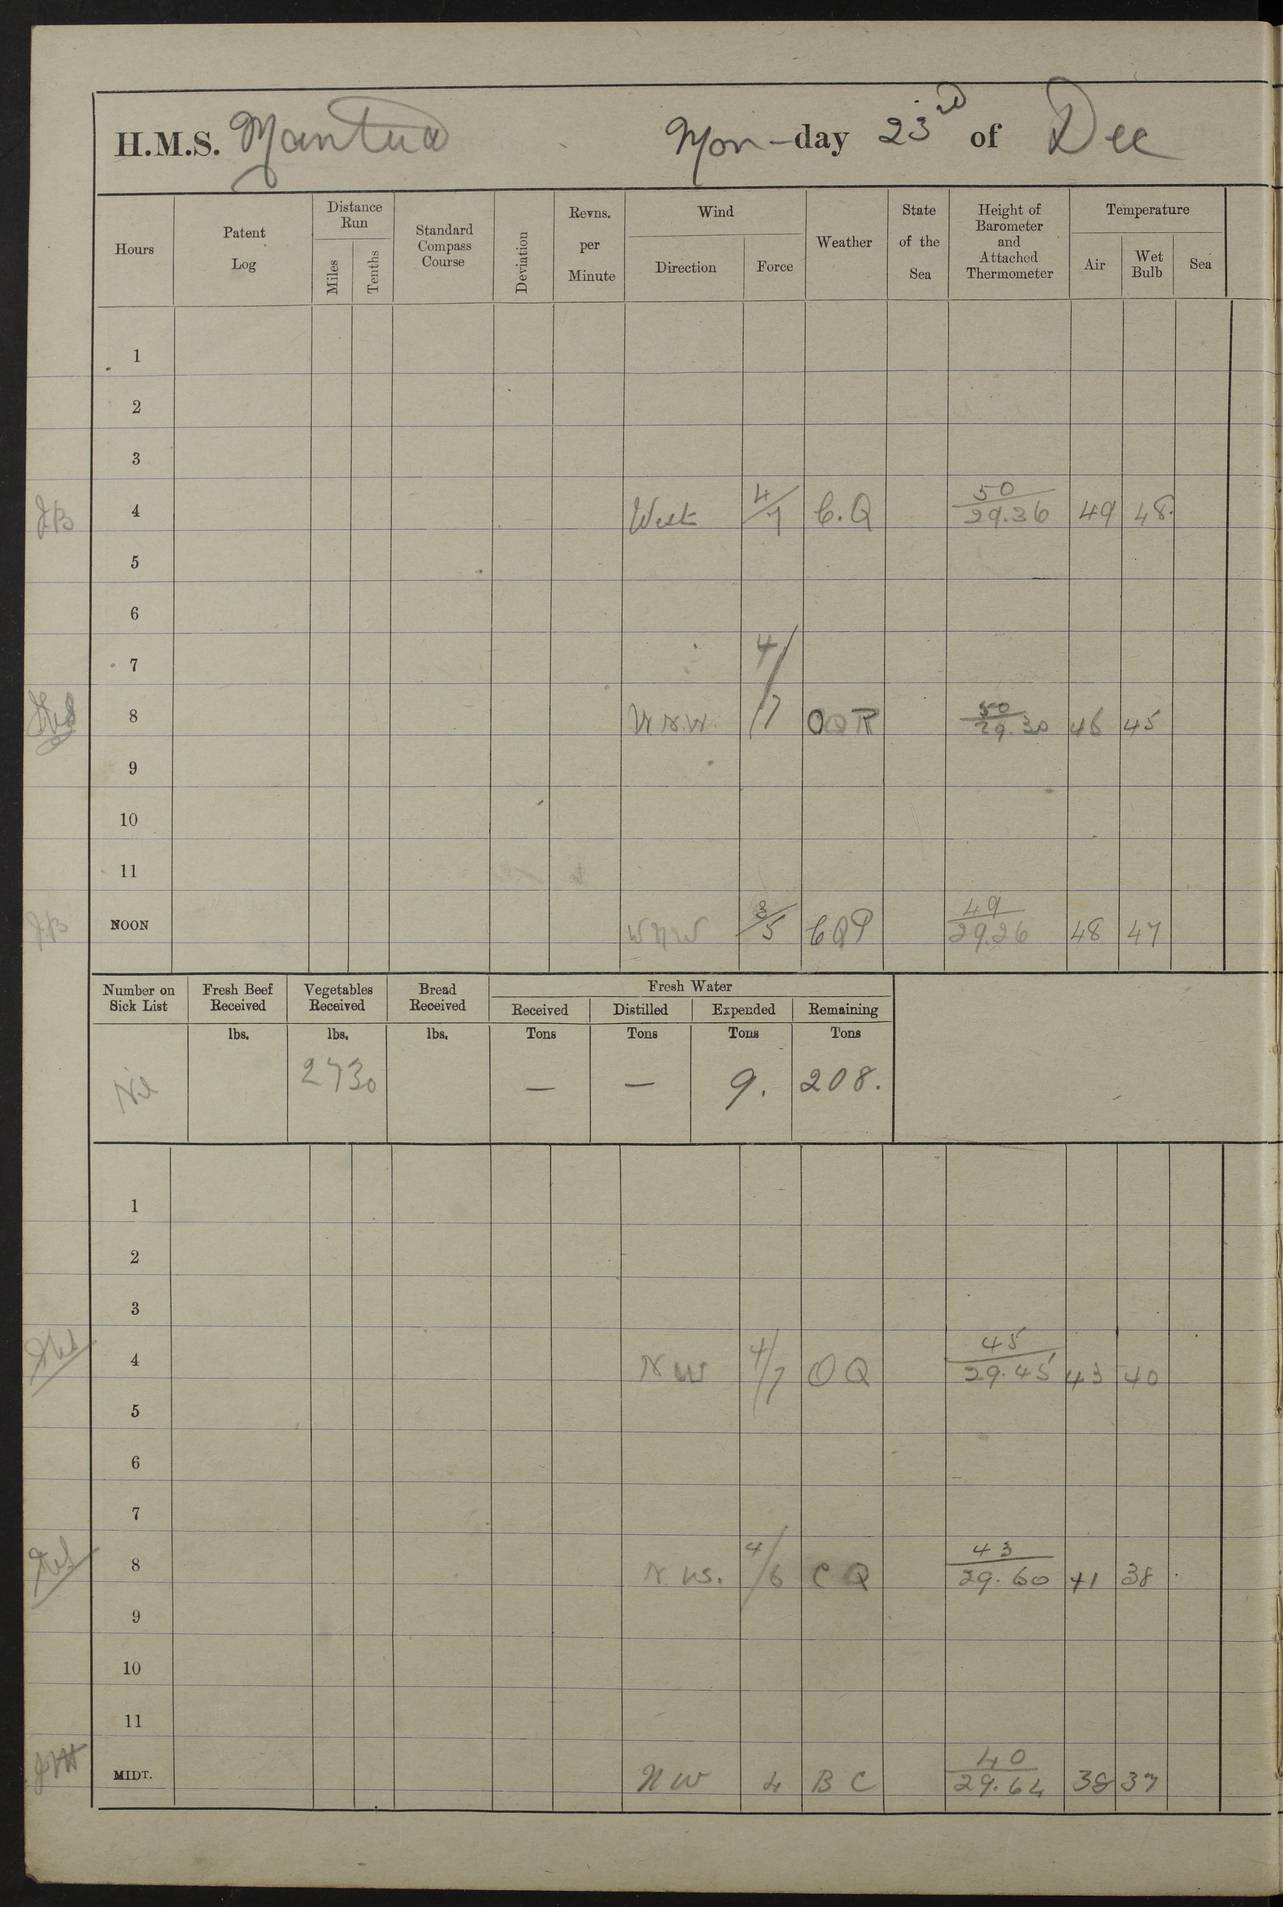 H.M.S. Mantua Mon-day 23rd of Dec
Hours Patent Log Distance Run Miles Tenths Standard Compass Course Deviation Revns. per Minute Wind Direction Force Weather State of the Sea Height of Barometer and Attached Thermometer Temperature Air Wet Bulb Sea
1
2
3
JB 4 West 4/7 C.Q 50/29.36 49 48.
5
6
7
8 W N.W. 4/7 O Q R 50/29.30 46 45
9
10
11
JB NOON W N W 3/5 C Q P 49/29.26 48 47
Number on Sick List Fresh Beef Received Vegetables Received Bread Received Fresh Water
Received Distilled Expended Remaining
lbs. lbs. lbs. Tons Tons Tons Tons
Nil 2730 — — 9. 208.
1
2
3
4 N W 4/7 O Q 45/29.45 43 40
5
6
7
8 N.W. 4/6 C Q 43/29.60 41 38
9
10
11
MIDT. N W 4 B C 40/29.64 38 37